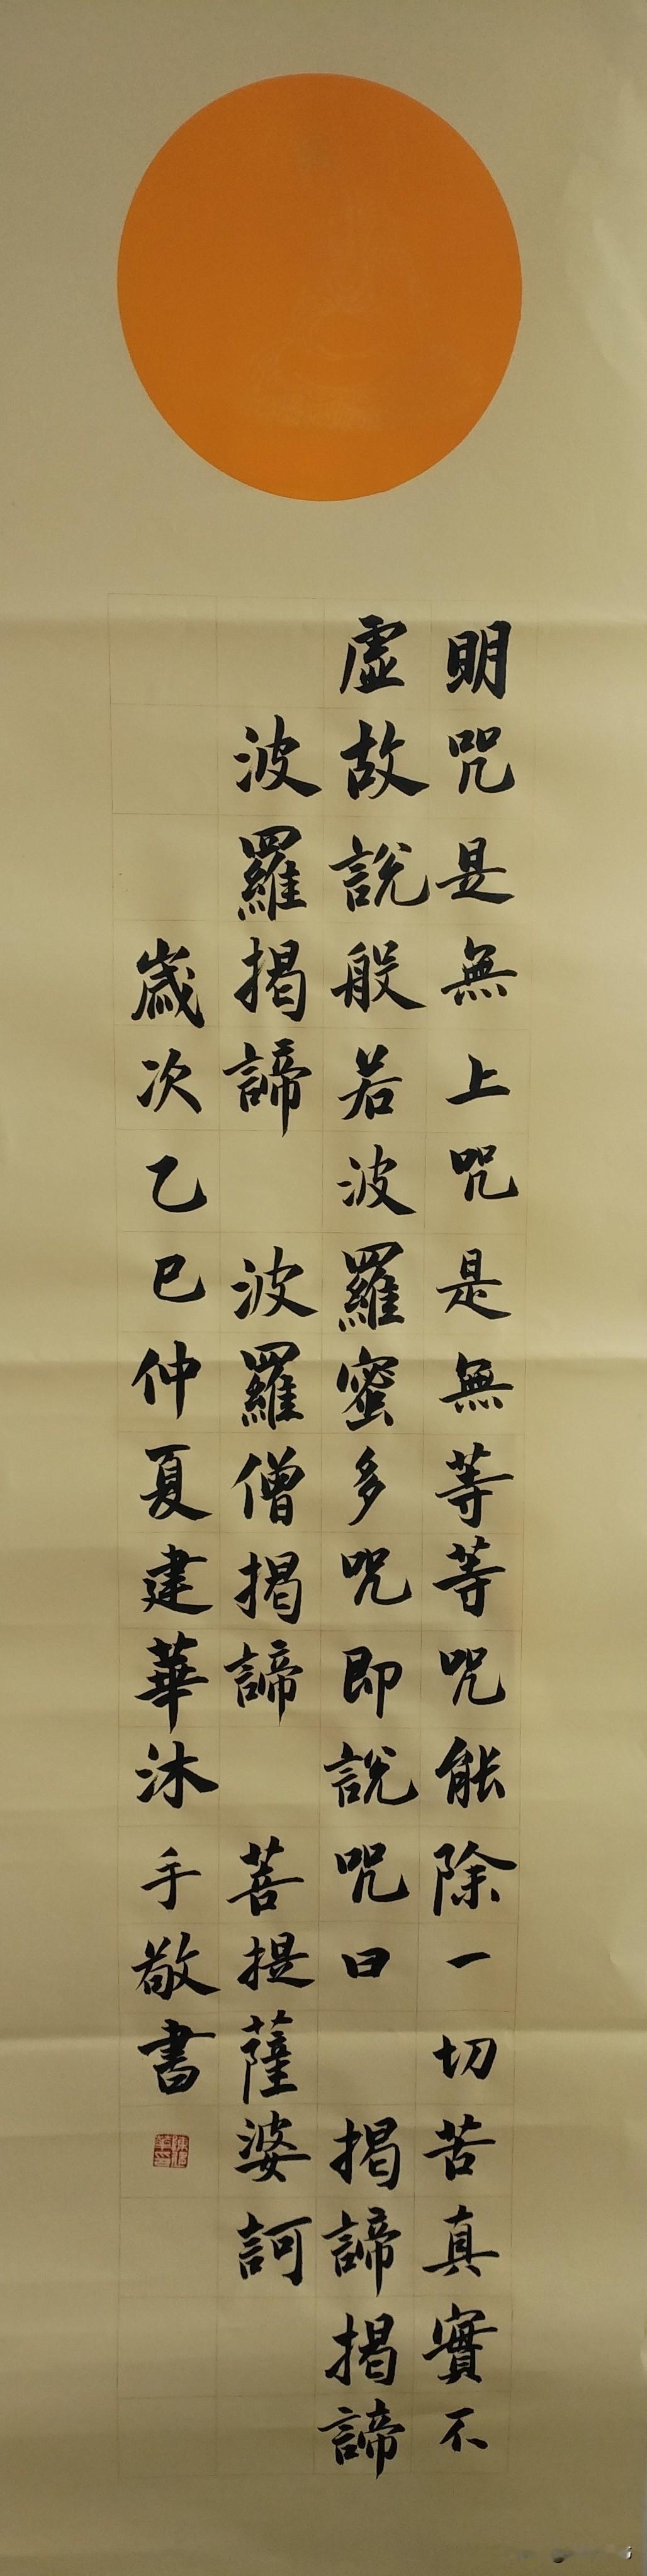 明咒是無上咒是無等等咒能除一切苦真實不
虛故說般若波羅蜜多咒即說咒曰 揭諦揭諦
波羅揭諦 波羅僧揭諦 菩提薩婆訶
歲次乙巳仲夏建華沐手敬書